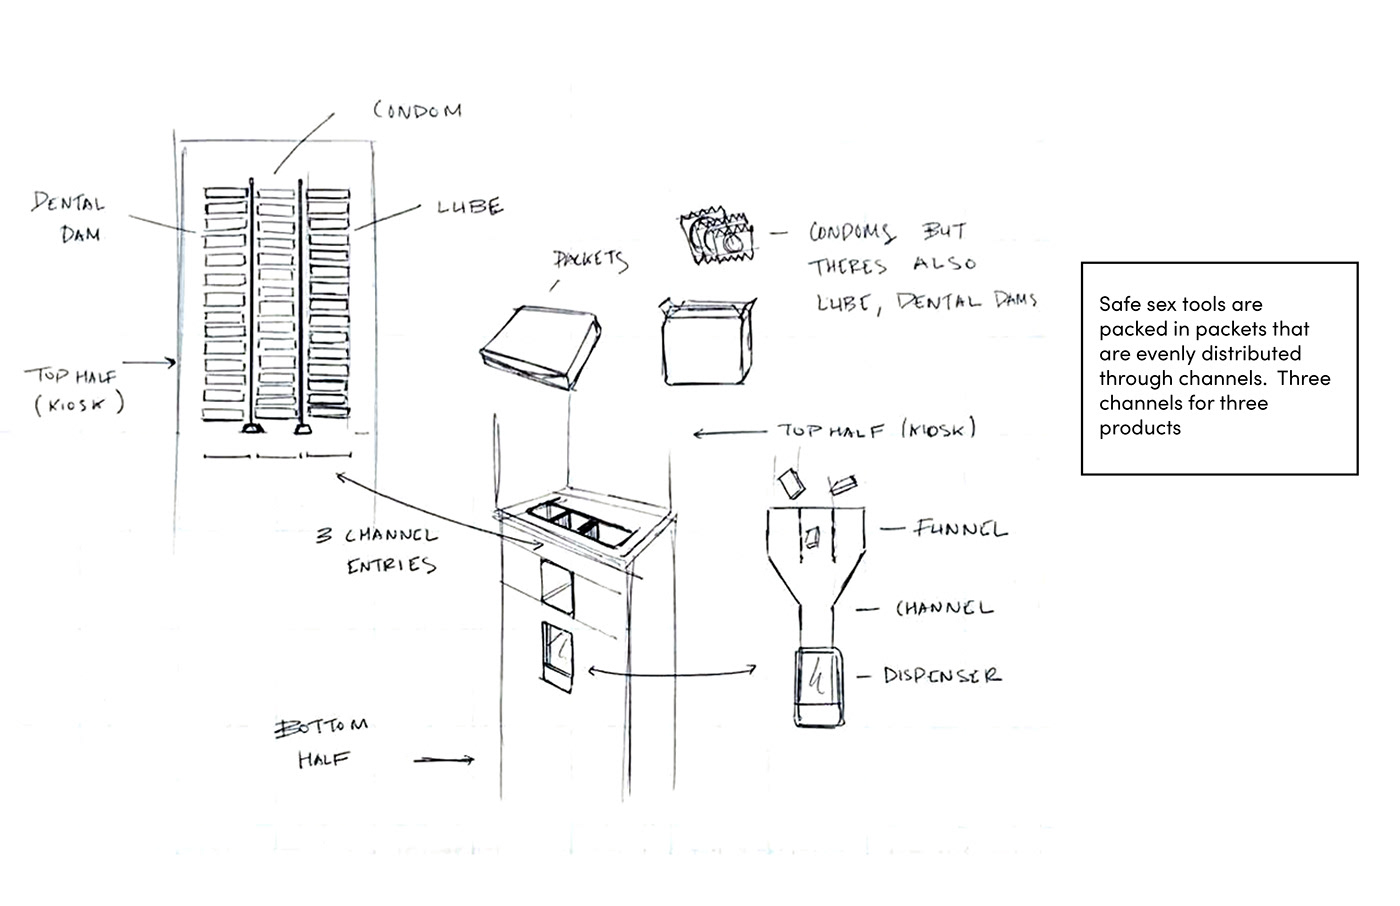 CONDOM
DENTAL
DAM
LUBE
TOP HALF
(KIOSK)
PACKETS
CONDOMS BUT
THERES ALSO
LUBE, DENTAL DAMS
TOP HALF (KIOSK)
3 CHANNEL
ENTRIES
FUNNEL
CHANNEL
DISPENSER
BOTTOM
HALF
Safe sex tools are
packed in packets that
are evenly distributed
through channels. Three
channels for three
products